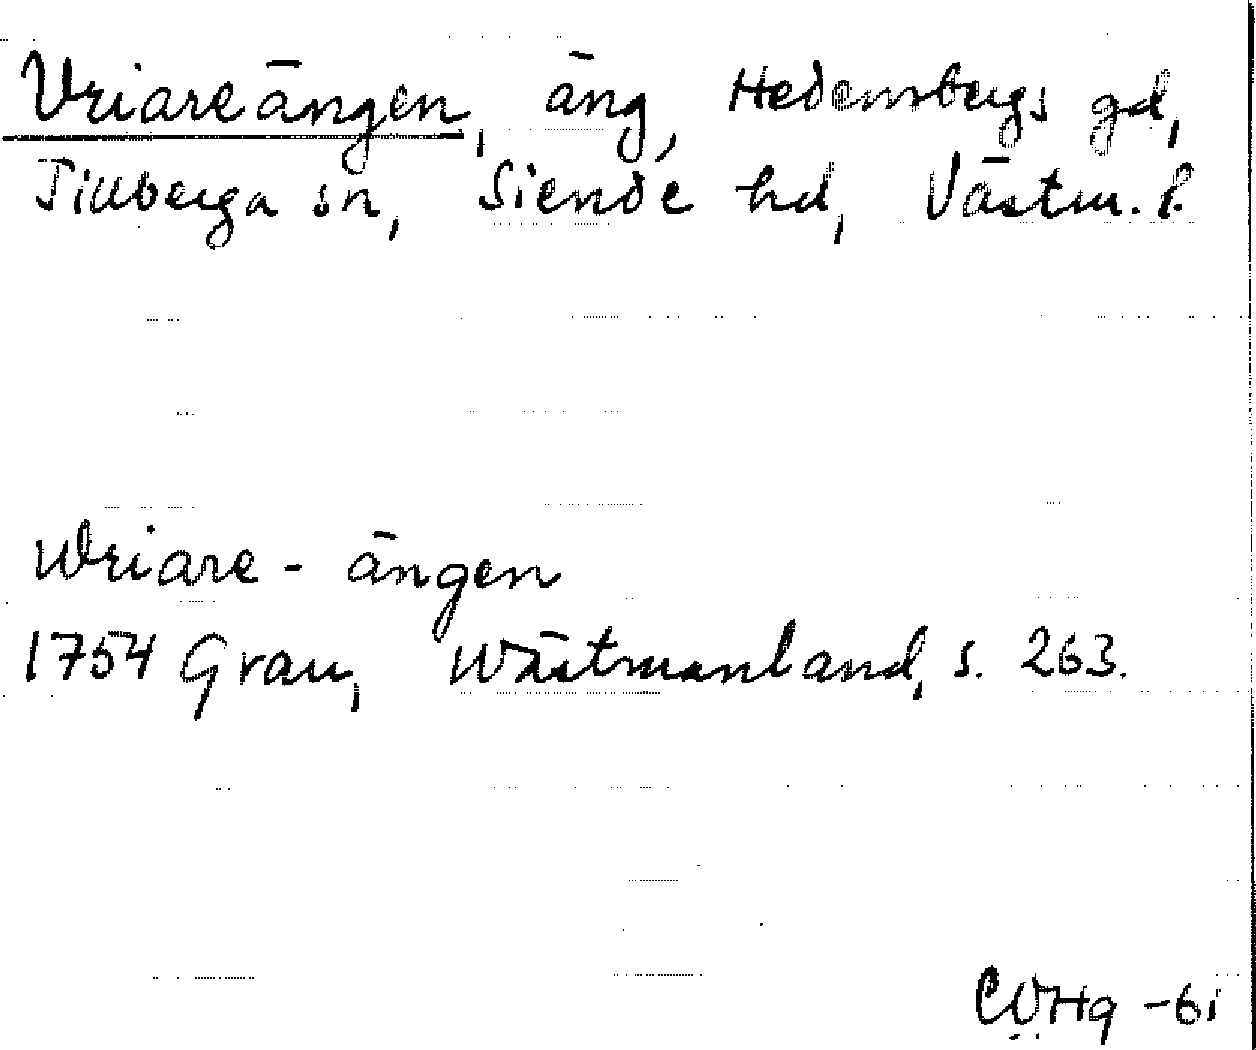 Vriareängen, äng, Hedensbergs gd,
Tillberga sn, Siende hd, Västm. l.
Wriare - ängen
1754 Grau, Wästmanland, s. 263.
CWHg -61